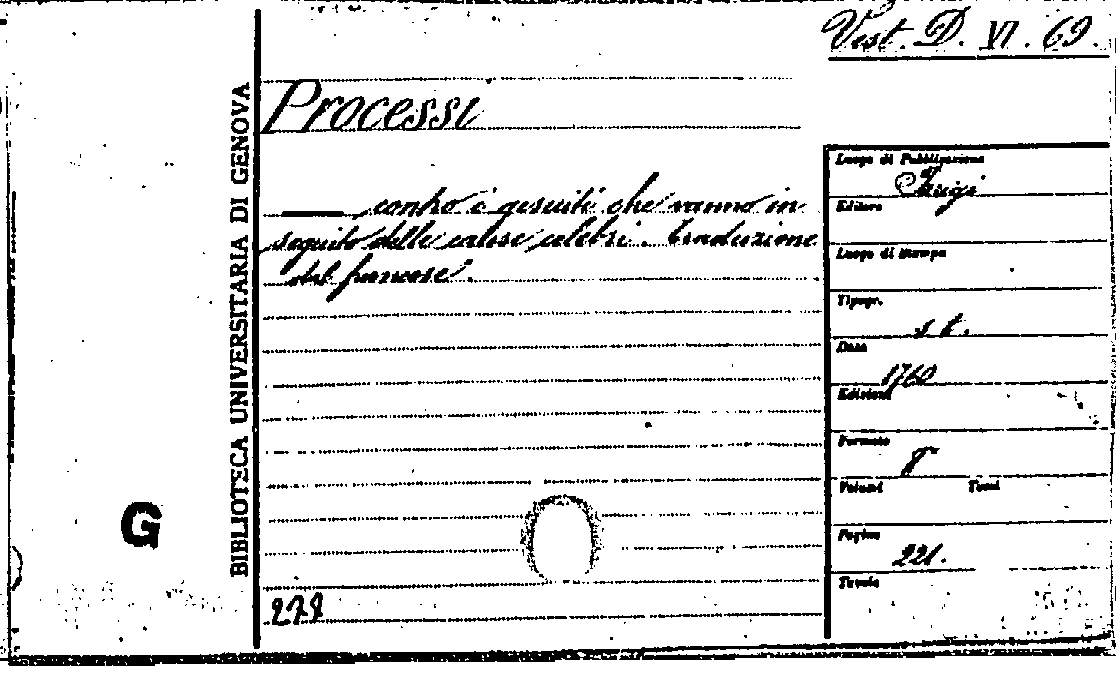 Vest. D. VI. 69.
Processi
contro i gesuiti che vanno in
seguito delle cause celebri. Traduzione
dal francese.
BIBLIOTECA UNIVERSITARIA DI GENOVA
G
278
Luogo di Pubblicazione
Parigi
Editore
Luogo di stampa
Tipogr.
s. t.
Data
1760
Edizione
Formato
8°
Volumi Tomi
Pagine
221.
Tavole